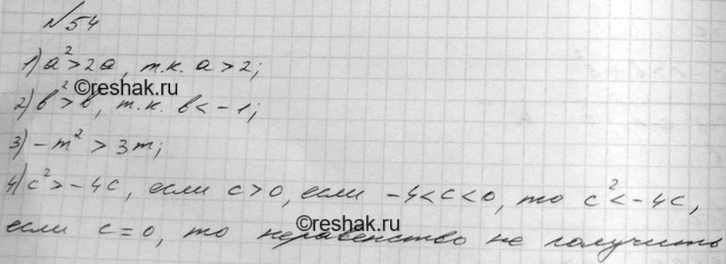 №54
1) a²>2a, т.к. a>2;
©reshak.ru
2) b²>b, т.к. b<-1;
3) -m²>3m;
4) c²>-4c, если c>0, если -4<c<0, то c²<-4c,
©reshak.ru
если c=0, то неравенство не получить